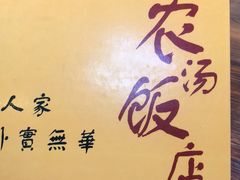 农汤飯店
人家
實無華